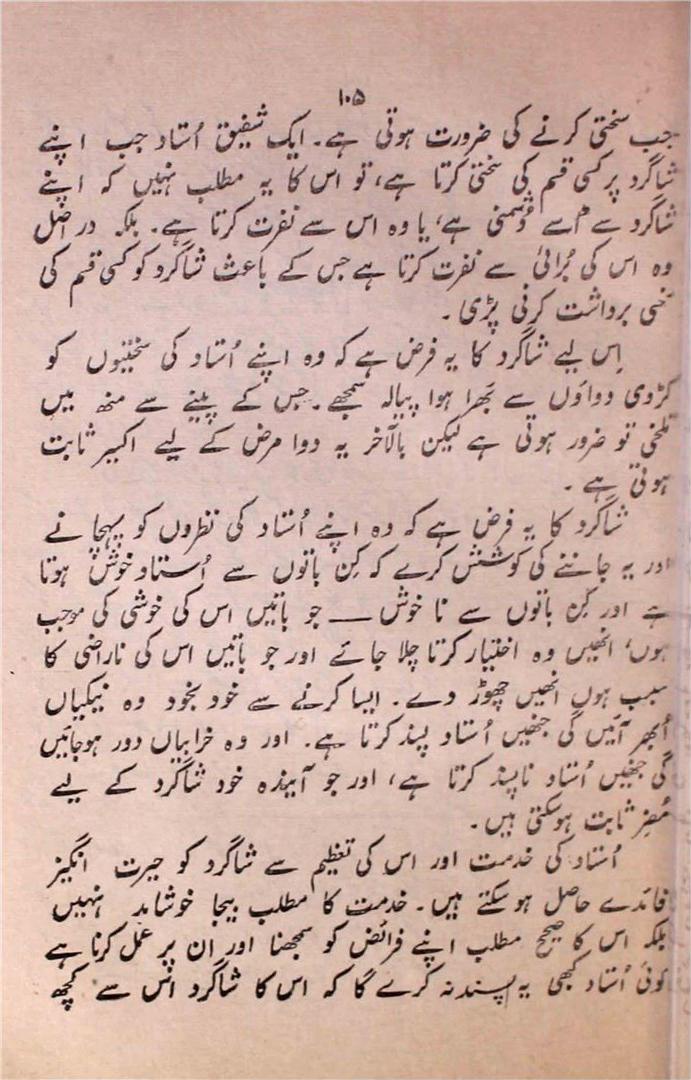 ۱۰۵
جب سختی کرنے کی ضرورت ہوتی ہے۔ ایک شفیق اُستاد جب اپنے
شاگرد پر کسی قسم کی سختی کرتا ہے، تو اس کا یہ مطلب نہیں کہ اپنے
شاگرد سے اُسے دُشمنی ہے، یا وہ اس سے نفرت کرتا ہے۔ بلکہ در اصل
وہ اس کی بُرائی سے نفرت کرتا ہے جس کے باعث شاگرد کو کسی قسم کی
سختی برداشت کرنی پڑی۔
اِس لیے شاگرد کا یہ فرض ہے کہ وہ اپنے اُستاد کی سختیوں کو
کڑوی دواؤں سے بھرا ہوا پیالہ سمجھے۔ جس کے پینے سے منھ میں
تلخی تو ضرور ہوتی ہے لیکن بالآخر یہ دوا مرض کے لیے اکسیر ثابت
ہوتی ہے۔
شاگرد کا یہ فرض ہے کہ وہ اپنے اُستاد کی نظروں کو پہچانے
اور یہ جاننے کی کوشش کرے کہ کِن باتوں سے اُستاد خوش ہوتا
ہے اور کِن باتوں سے نا خوش ـــ جو باتیں اس کی خوشی کی موجب
ہوں، انھیں وہ اختیار کرتا چلا جائے اور جو باتیں اس کی ناراضی کا
سبب ہوں انھیں چھوڑ دے۔ ایسا کرنے سے خود بخود وہ نیکیاں
اُبھر آئیں گی جنھیں اُستاد پسند کرتا ہے۔ اور وہ خرابیاں دور ہوجائیں
گی جنھیں اُستاد ناپسند کرتا ہے، اور جو آیندہ خود شاگرد کے لیے
مُضِر ثابت ہوسکتی ہیں۔
اُستاد کی خدمت اور اس کی تعظیم سے شاگرد کو حیرت انگیز
فائدے حاصل ہو سکتے ہیں۔ خدمت کا مطلب بیجا خوشامد نہیں
بلکہ اس کا صحیح مطلب اپنے فرائض کو سمجھنا اور ان پر عمل کرنا ہے
کوئی اُستاد کبھی یہ پسند نہ کرے گا کہ اس کا شاگرد اس سے کچھ